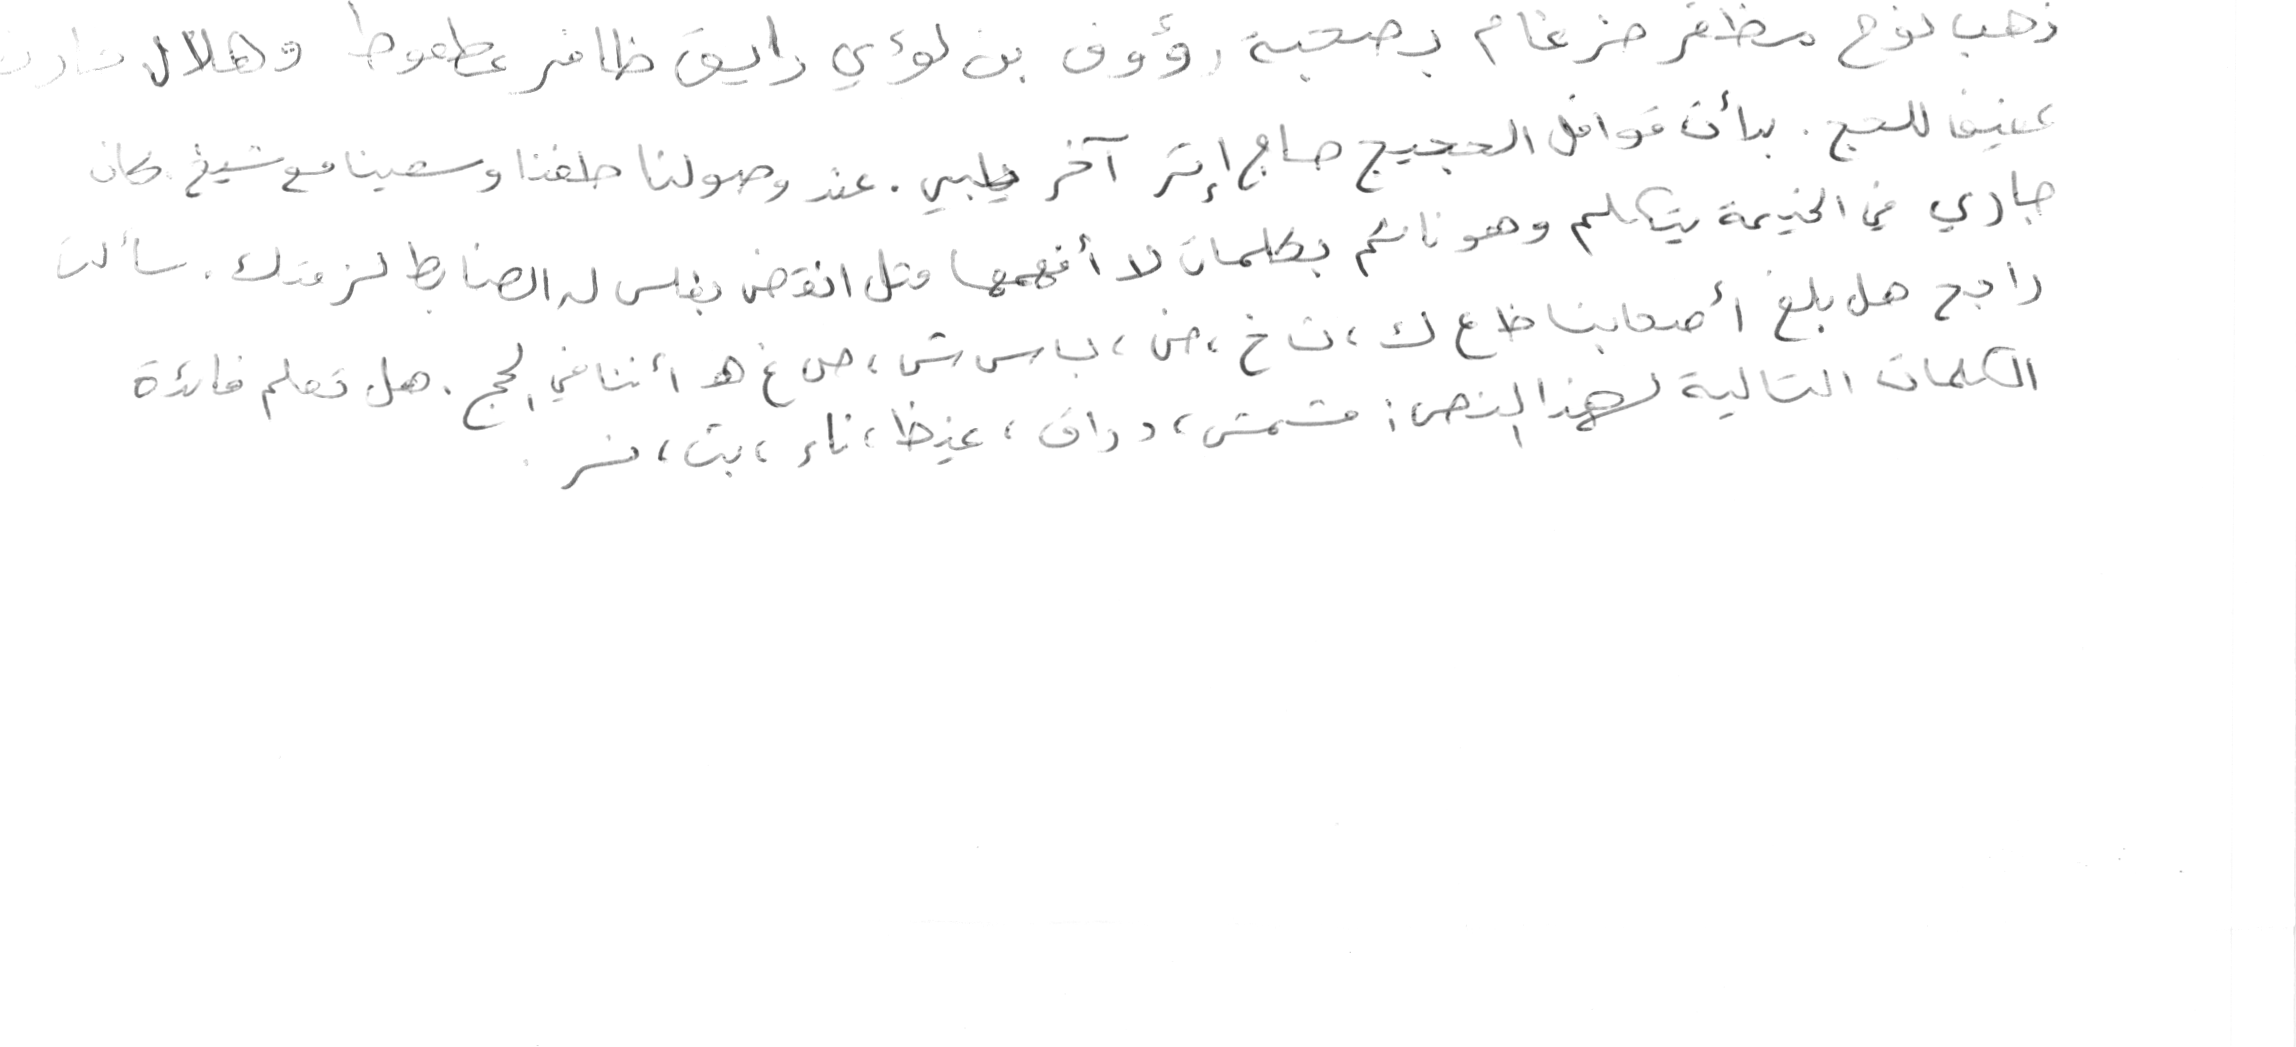 ذهب نوح مظفر ضرغام بصحبة رؤوف بن لؤي رايق ظافر عطعوط و هلال
عفيف للحج. بدأت قوافل الحجيج حاج إثر آخر يلبي. عند وصولنا طفنا وسعينا مع شيخ. كان
جاري في الخيمة يتكلم وهو نائم بكلمات لا أفهمها مثل انقض بغلس له الضابط لزمتك. سألت
راجح هل بلغ أصحابنا ظ ع ك، ث خ، ض، ب س ش، ص غ هـ أننا في الحج. هل تعلم فائدة
الكلمات التالية لهذا النص: مشمش، دراق، غيظ، ناء، بث، نسر